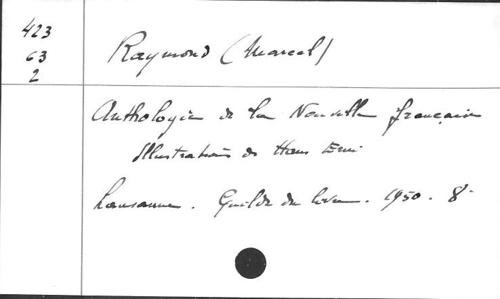 423
63
2
Raymond (Marcel)
Anthologie de la Nouvelle française
Illustrations de Hans Erni
Lausanne. Guilde du livre. 1950. 8°